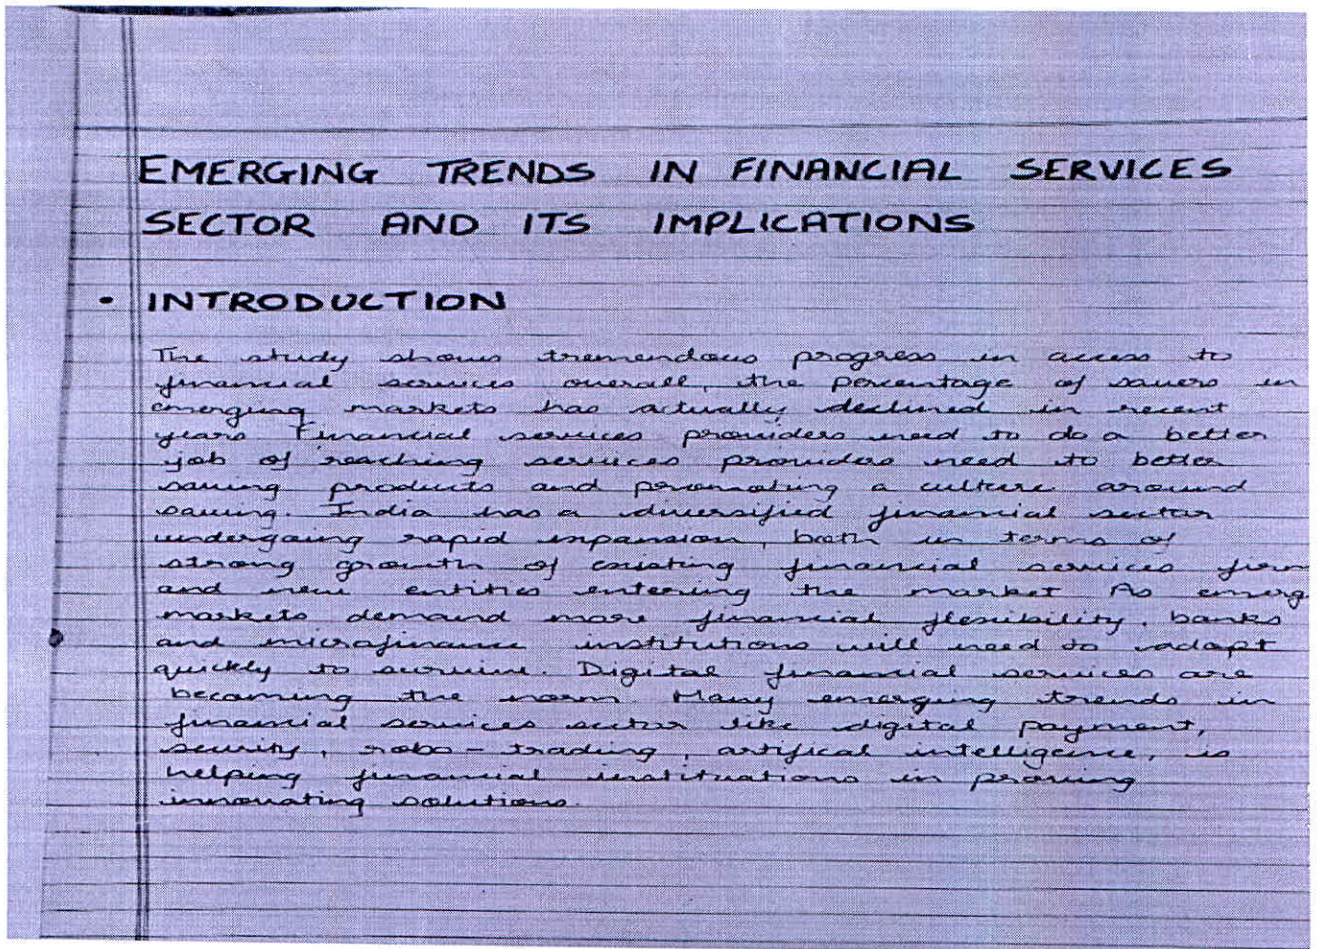 EMERGING TRENDS IN FINANCIAL SERVICES
SECTOR AND ITS IMPLICATIONS
• INTRODUCTION
The study shows tremendous progress in access to
financial services overall, the percentage of savers in
emerging markets has actually declined in recent
years. Financial services providers need to do a better
job of reaching services providers need to better
saving products and promoting a culture around
saving. India has a diversified financial sector
undergoing rapid expansion, both in terms of
strong growth of existing financial services firm
and new entities entering the market As emerg
markets demand more financial flexibility, banks
and microfinance institutions will need to adapt
quickly to survive. Digital financial services are
becoming the norm. Many emerging trends in
financial services sector like digital payment,
security, robo - trading, artifical intelligence, is
helping financial instituations in proving
innovating solutions.